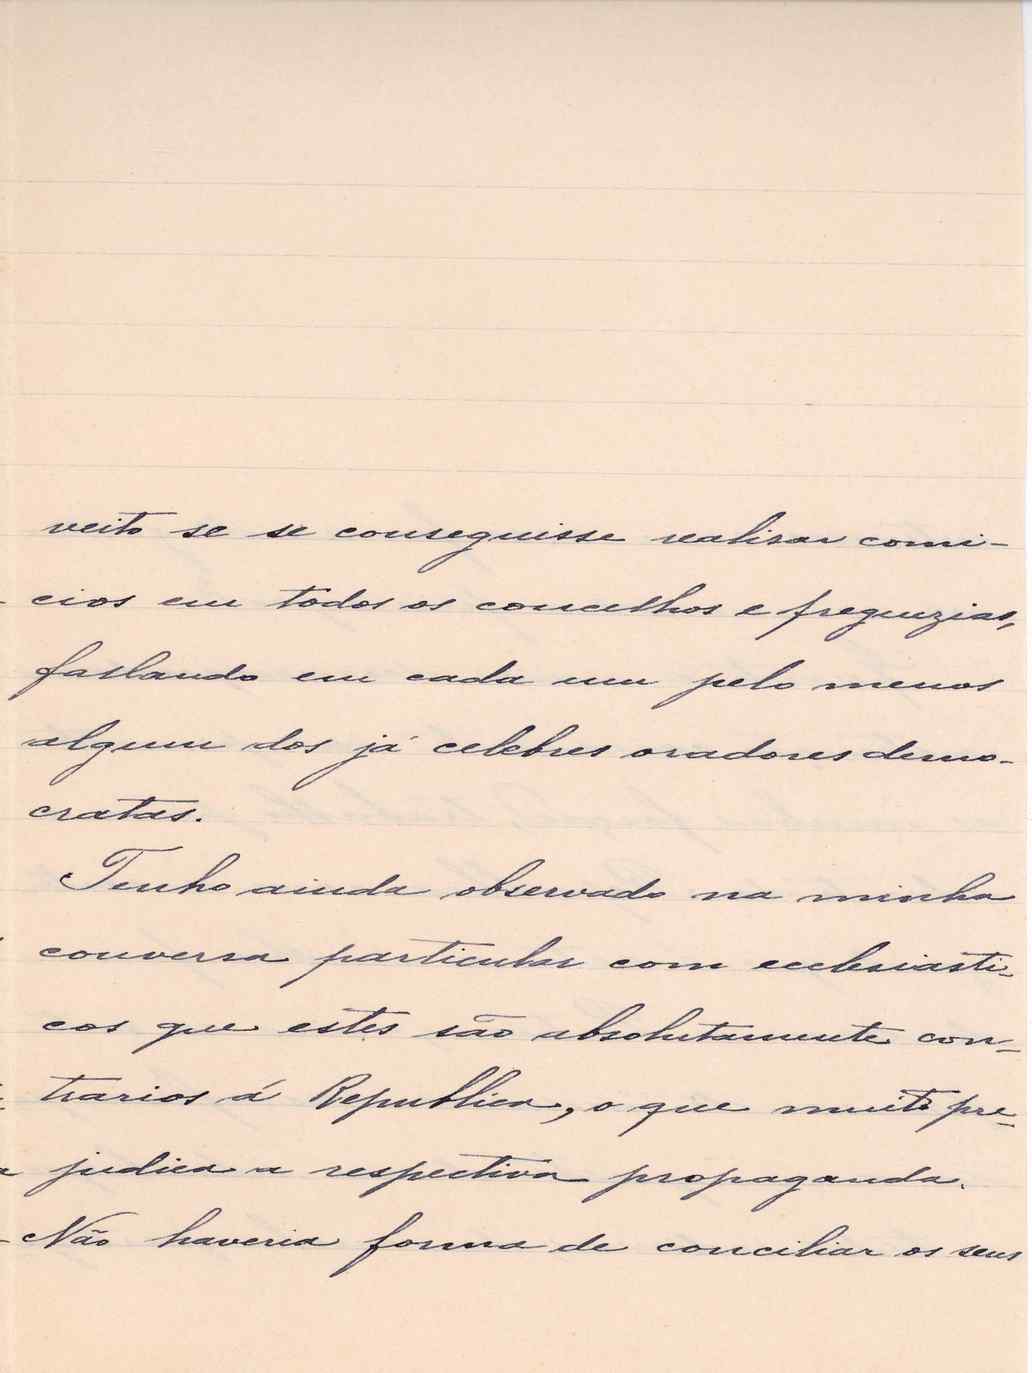 veito se se conseguisse realisar comi-
cios em todos os concelhos e freguezias,
fallando em cada um pelo menos
algum dos já celebres oradores demo-
cratas.
Tenho ainda observado na minha
conversa particular com ecclesiasti-
cos que estes são absolutamente con-
trarios á Republica, o que muito pre-
judica a respectiva propaganda.
Não haveria forma de conciliar os seus